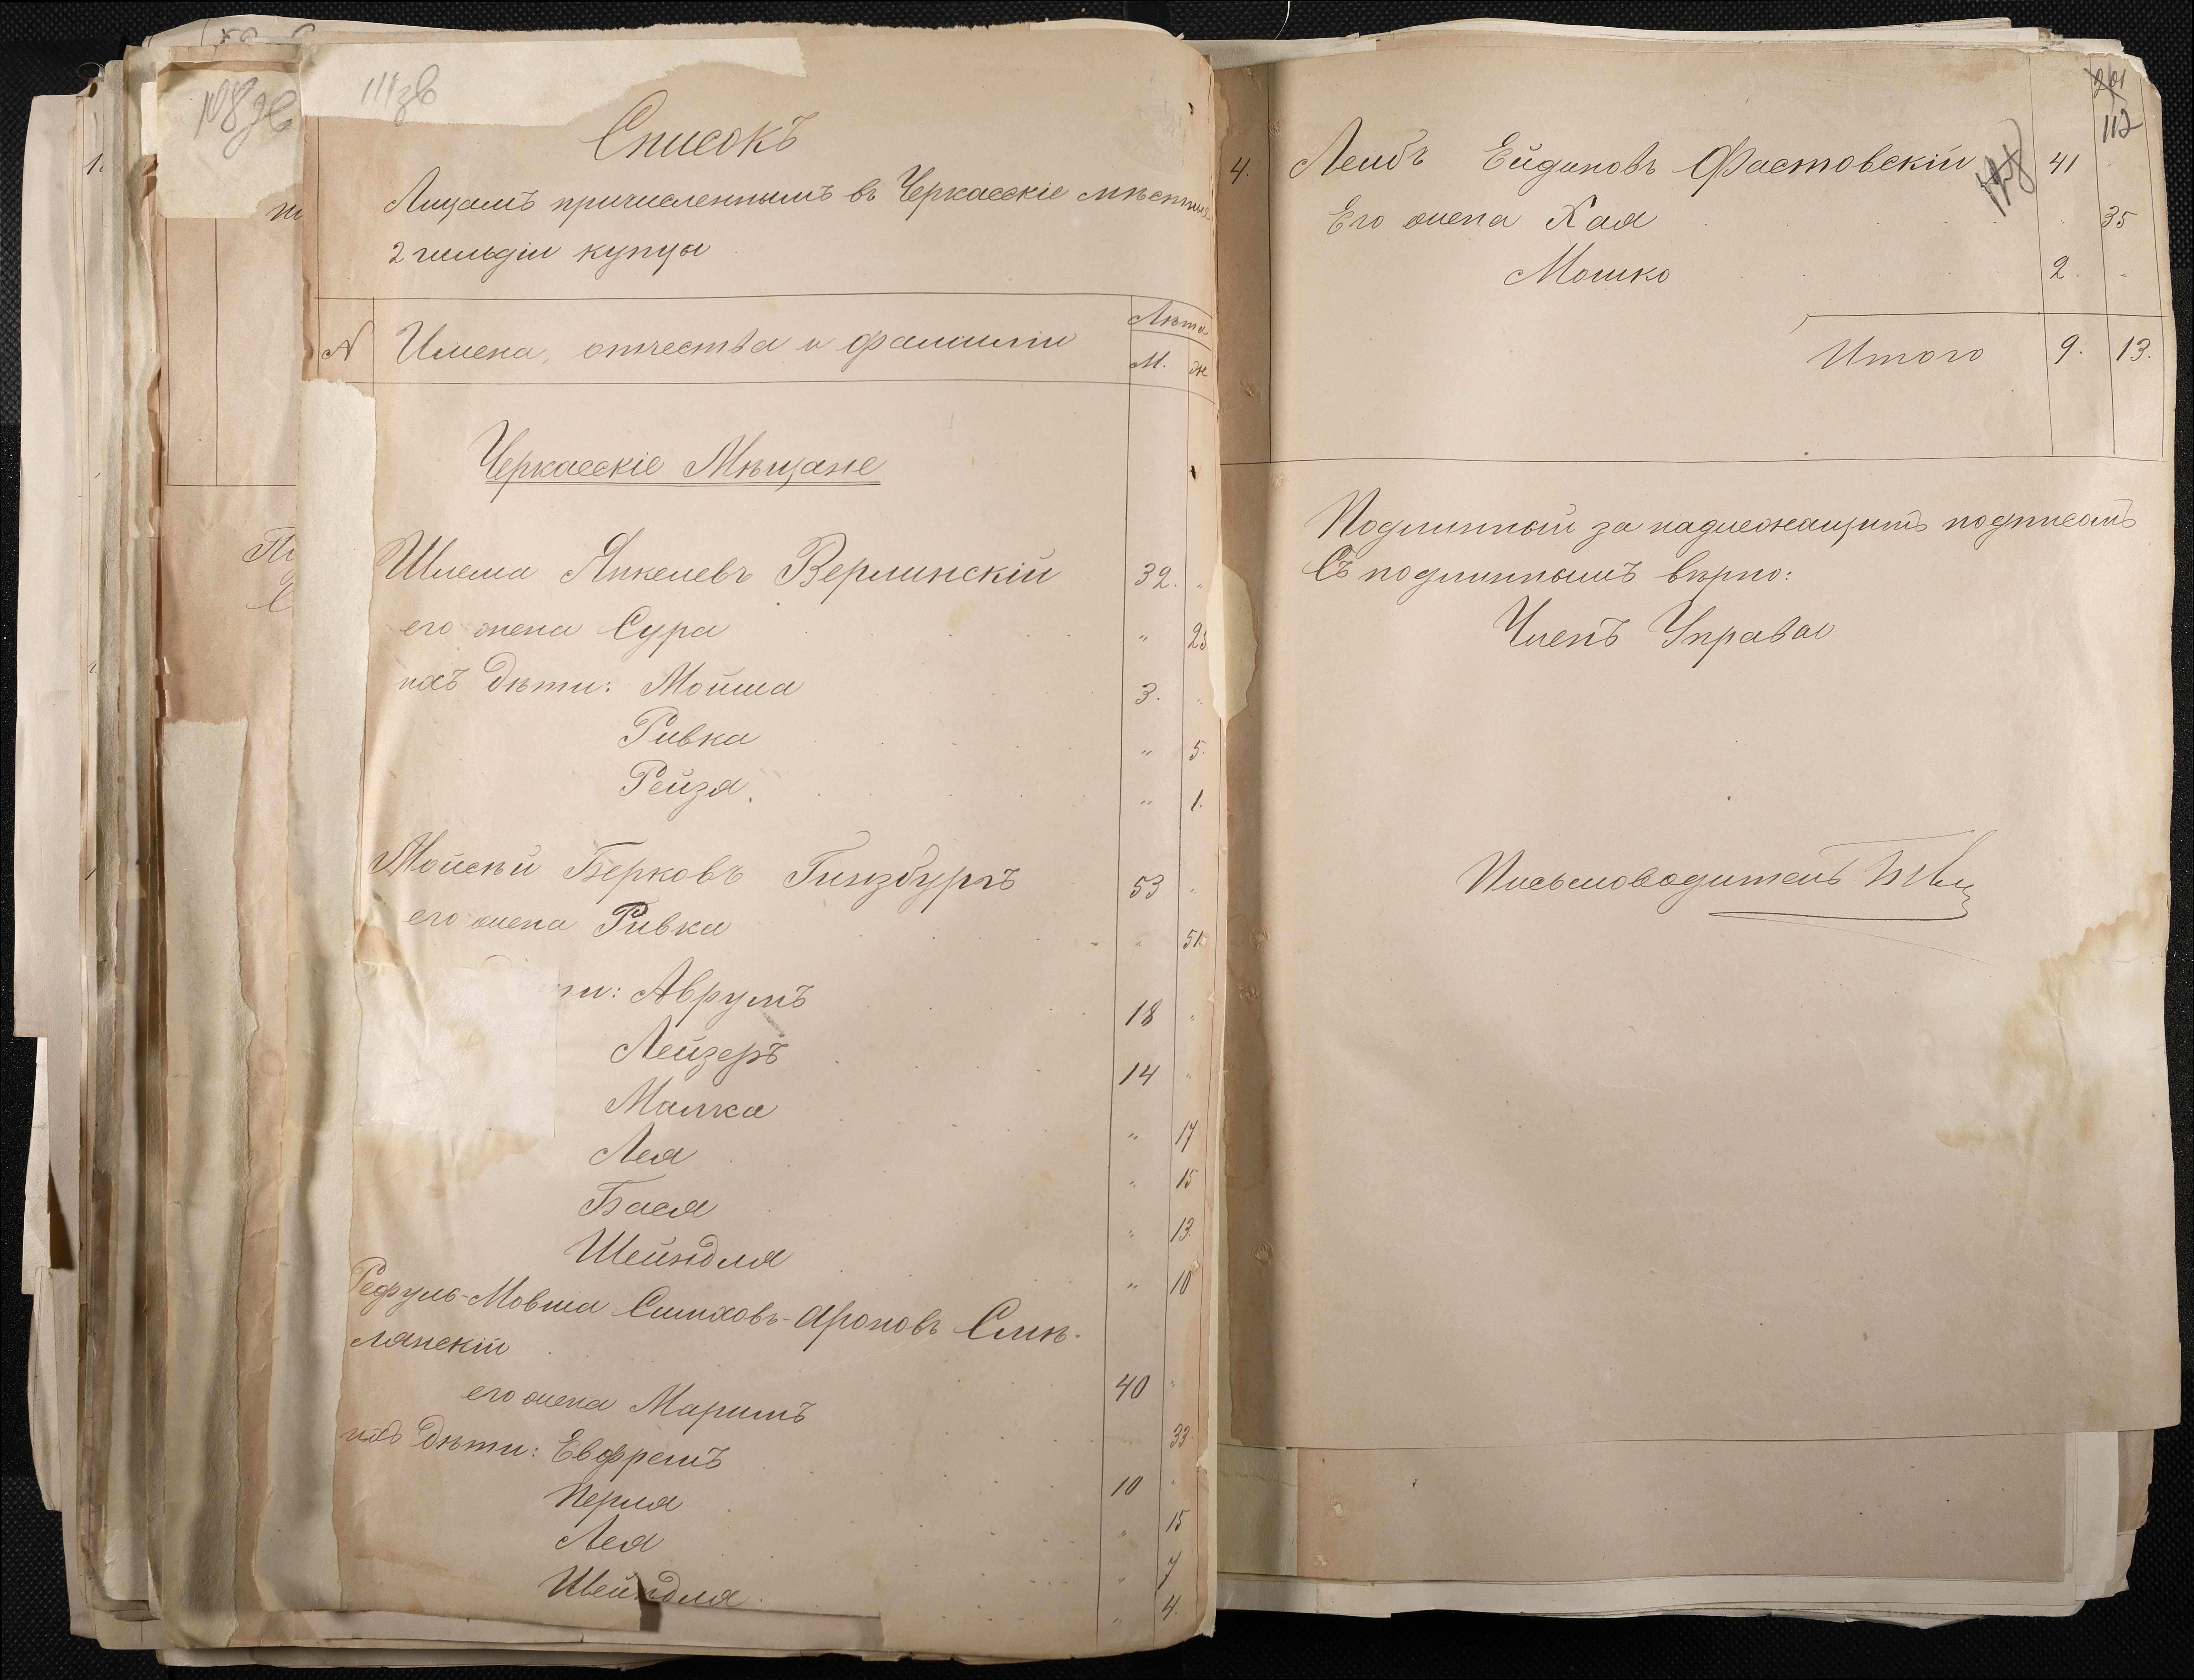 111зв
108 зв
Списокъ
Лицамъ причисленнымъ въ Черкасскіе мѣстные
2 гильдіи купцы
Лѣта
№ Имена, отчества и фамиліи М. Ж
Черкасскіе Мѣщане
Шлема Янкелевъ Верлинскій 32. "
его жена Сура " 25
ихъ дѣти: Мойша 3. "
Ривка " 5.
Рейза " 1.
Мойсѣй Берковъ Гинзбургъ 53 "
его жена Ривка " 51
ти: Аврумъ 18 "
Лейзеръ 14 "
Малка " 17
Лея " 15
Бася " 13.
Шейндля " 10
Рефуль-Мовша Симховъ-Ароновъ Смѣ-
лянскій 40 "
его жена Маримъ 33.
ихъ дѣти: Евфремъ 10 "
Перля " 15
Лея " 7
Шейндля. " 4.
201
112
4. Лейбъ Ейдиновъ Фастовскій 41 "
Его жена Хая " 35
Мошко 2. "
Итого 9. 13.
Подлинный за надлежащимъ подписомъ
Съ подлиннымъ вѣрно:
Членъ Управы
Письмоводитель